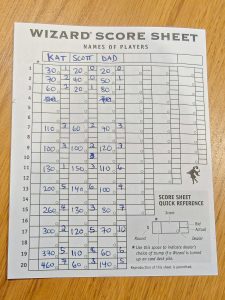 WIZARD® SCORE SHEET
NAMES OF PLAYERS
KAT SCOTT DAD
1 30 1 20 0 20 0
2 70 2 40 0 50 1
3 60 2 20 1 80 1
4
5
6
7 110 3 60 2 40 3
8
9 100 3 100 2 120 3
10
11 130 1 150 3 110 6
12
13 200 5 140 6 100 4
14
15 260 4 130 3 80 7
16
17 300 2 120 5 70 10
18
19 370 5 110 8 60 6
20 460 7 60 3 140 5
SCORE SHEET
QUICK REFERENCE
Score
Bid
Actual
Round
Dealer
Use this space to indicate dealer's
choice of trump if a Wizard® is turned
up on said last play.
Reproduction of this sheet is permitted.